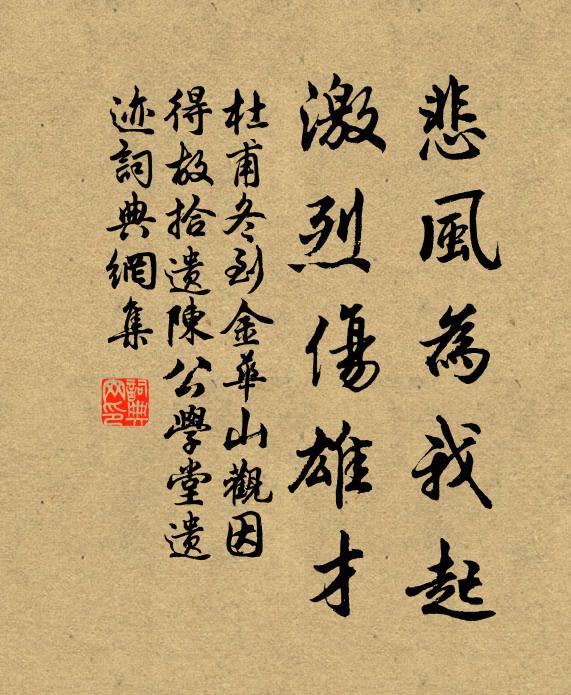 悲風為我起
激烈傷雄才
杜甫冬到金華山觀因
得故拾遺陳公學堂遺
迹詞典網集
詞典
网印